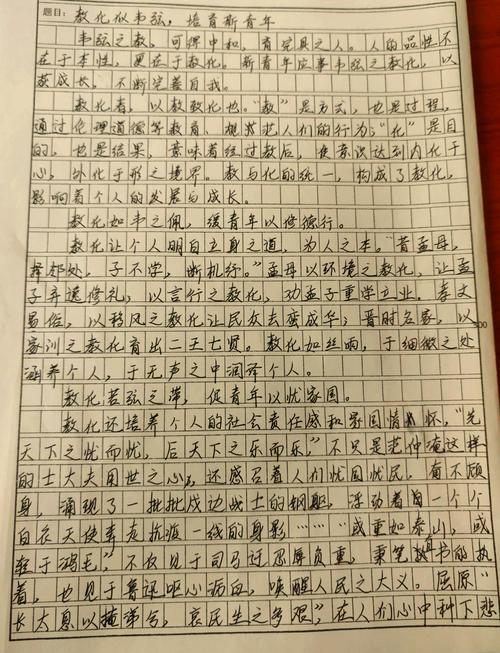 题目：教化似韦弦，培育新青年
韦弦之教，可得中和，育完具之人。人的品性不
在于本性，更在于教化。新青年应事韦弦之教化，以
获成长，不断完善自我。
教化者，以教致化也。“教”是方式，也是过程，
通过伦理道德等教育、规范人们的行为；“化”是目
的，也是结果，意味着经过教后，使意识达到内化于
心，外化于形之境界。教与化的统一，构成了教化，
影响着个人的发展与成长。
教化如韦之佩，缓青年以修德行。
教化让个人明白立身之道，为人之本。“昔孟母，
择邻处，子不学，断机杼。”孟母以环境之教化，让孟
子弃逸修礼；以言行之教化，劝孟子重学立业。孝文
易俗，以移风之教化让民众去蛮成华；晋时名家，以
300
家训之教化育出二王七贤。教化如丝响，于细微之处
涵养个人，于无声之中润泽个人。
教化若弦之带，促青年以忧家国。
教化还培养个人的社会责任感和家国情怀，“先
天下之忧而忧，后天下之乐而乐”，不只是范仲淹这样
的士大夫用世之心，还感召着人们忧国忧民，奋不顾
身，涌现了一批批戍边战士的钢躯，浮动着一个个
白衣天使奔走抗疫一线的身影……“或重如泰山，或
轻于鸿毛”，不仅见于司马迁忍辱负重，秉笔直书的执
着，也见于鲁迅呕心沥血，唤醒人民之大义。屈原“
长太息以掩涕兮，哀民生之多艰”，在人们心中种下悲